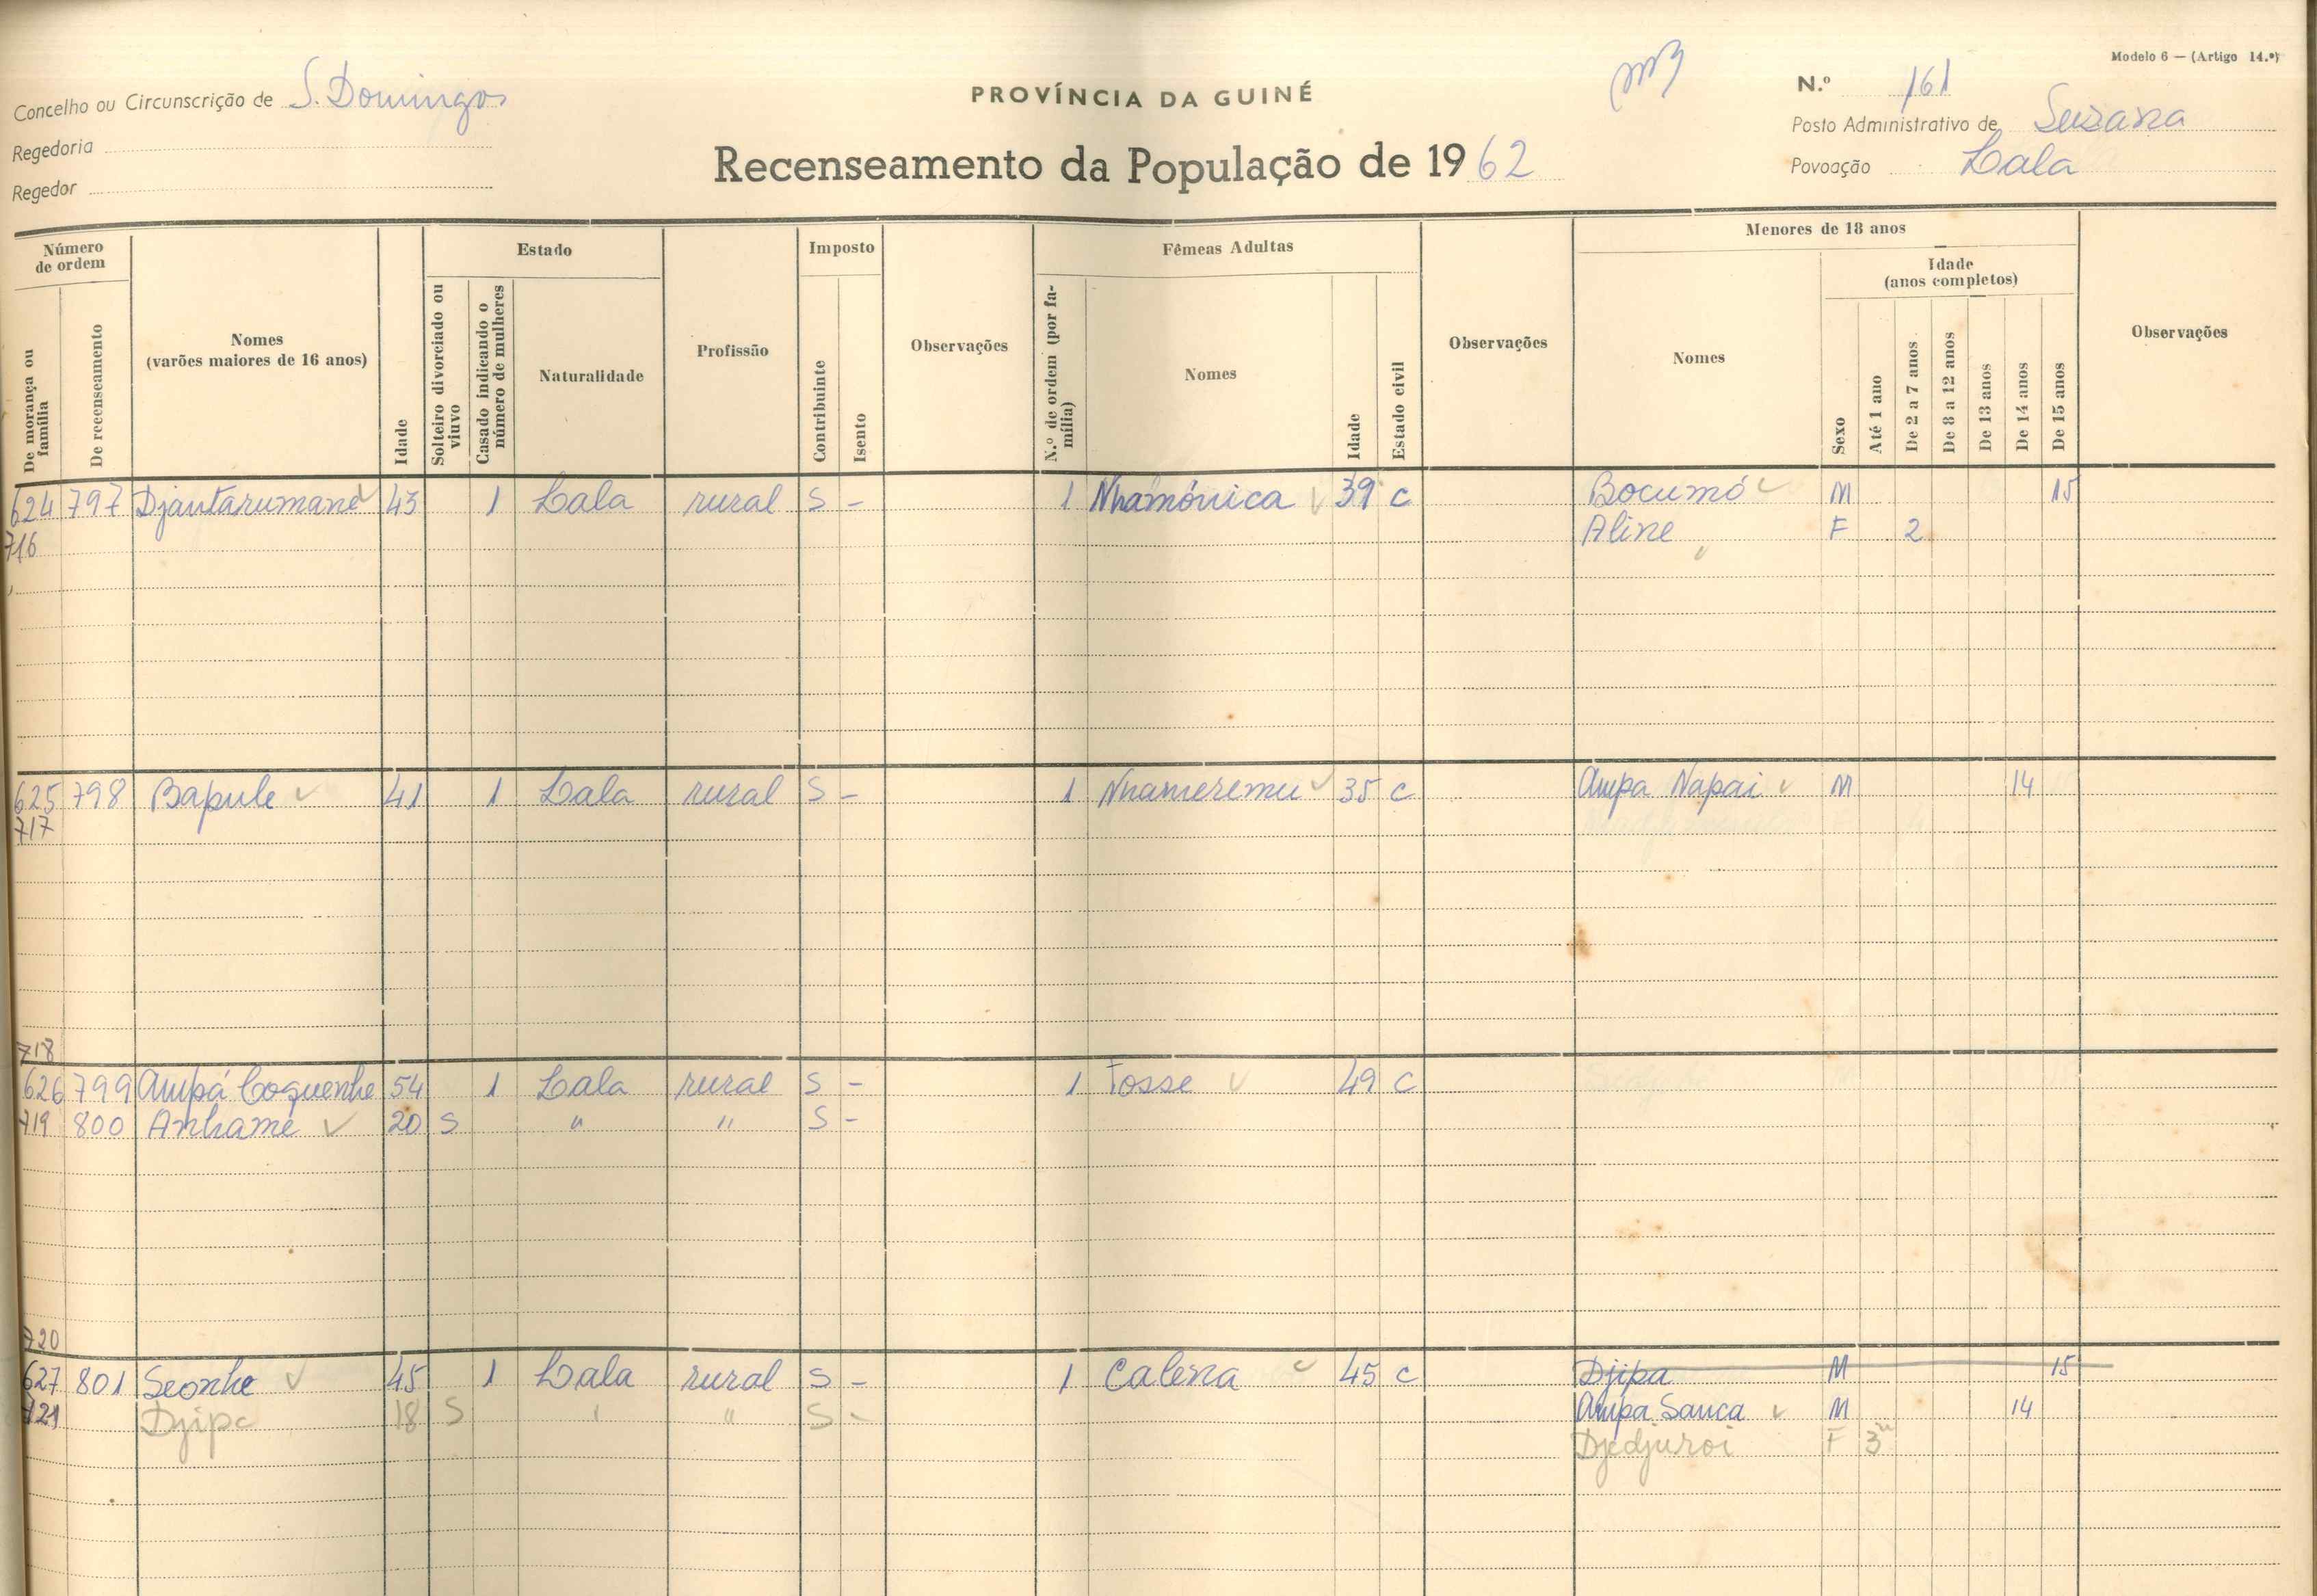 Modelo 6 — (Artigo 14.º)
Concelho ou Circunscrição de S. Domingos
PROVÍNCIA DA GUINÉ
N.º 161
Regedoria
Posto Administrativo de Suzana
Regedor
Recenseamento da População de 1962
Povoação Lala
Número de ordem
Estado
Imposto
Fêmeas Adultas
Menores de 18 anos
Idade (anos completos)
De morança ou família
De recenseamento
Nomes (varões maiores de 16 anos)
Idade
Solteiro divorciado ou viuvo
Casado indicando o número de mulheres
Naturalidade
Profissão
Contribuinte
Isento
Observações
N.º de ordem (por família)
Nomes
Idade
Estado civil
Observações
Nomes
Sexo
Até 1 ano
De 2 a 7 anos
De 8 a 12 anos
De 13 anos
De 14 anos
De 15 anos
Observações
624 797 Djantarumane 43 1 Lala rural S - 1 Nhamónica 39 C Bocumó M 15
716 Aline F 2
625 798 Bapule 41 1 Lala rural S - 1 Nhameremu 35 C Ampa Napai M 14
717
718
626 799 Ampá Coquenhe 54 1 Lala rural S - 1 Fosse 49 C
719 800 Anhame 20 S " " S -
720
627 801 Seonhe 45 1 Lala rural S - 1 Calena 45 C Djipa M 15
721 Djipa 18 S " " S - Ampa Sanca M 14
Djedjuroi F 3